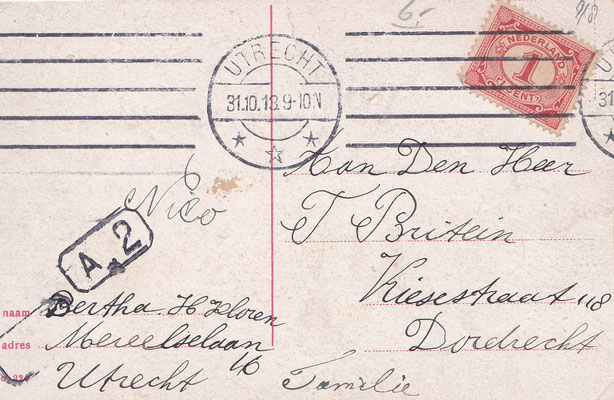 6.-
9/8
UTRECHT
31.10.18.9-10N
NEDERLAND
1
CENT
31
Aan Den Heer
T Britein
Kiesestraat 118
Dordrecht
Nico
A 2
naam Bertha. H Kloren
adres Mereelselaan
16
Utrecht
Familie